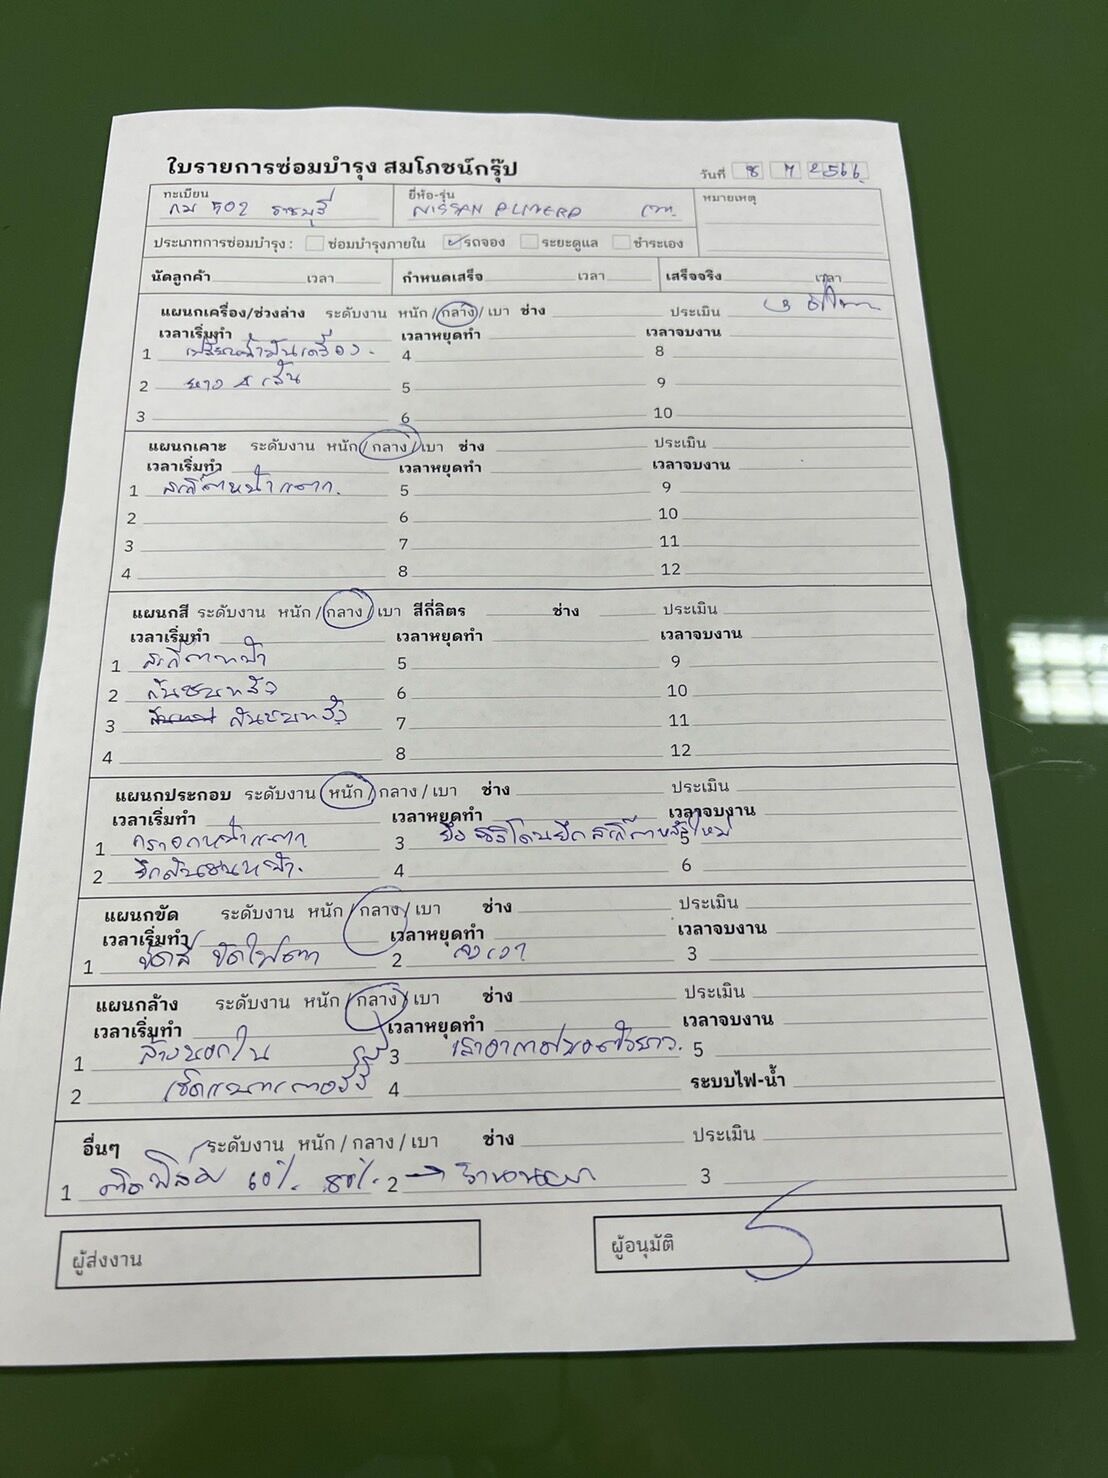 ใบรายการซ่อมบำรุง สมโภชน์กรุ๊ป
วันที่ 8 7 2566
ทะเบียน ยี่ห้อ-รุ่น หมายเหตุ
กม 502 ราชบุรี NISSAN ALMERA เทา
ประเภทการซ่อมบำรุง : ซ่อมบำรุงภายใน รถจอง ระยะดูแล ชำระเอง
นัดลูกค้า เวลา กำหนดเสร็จ เวลา เสร็จจริง เวลา
แผนกเครื่อง/ช่วงล่าง ระดับงาน หนัก / กลาง / เบา ช่าง ประเมิน
เวลาเริ่มทำ เวลาหยุดทำ เวลาจบงาน
1 เปลี่ยนน้ำมันเครื่อง. 4 8
2 ยาง 4 เส้น 5 9
3 6 10
แผนกเคาะ ระดับงาน หนัก / กลาง / เบา ช่าง ประเมิน
เวลาเริ่มทำ เวลาหยุดทำ เวลาจบงาน
1 สเกิ๊ตหน้าแตก. 5 9
2 6 10
3 7 11
4 8 12
แผนกสี ระดับงาน หนัก / กลาง / เบา สีกี่ลิตร ช่าง ประเมิน
เวลาเริ่มทำ เวลาหยุดทำ เวลาจบงาน
1 สเกิ๊ตหน้า 5 9
2 กันชนหลัง 6 10
3 กันชนหลัง 7 11
4 8 12
แผนกประกอบ ระดับงาน หนัก / กลาง / เบา ช่าง ประเมิน
เวลาเริ่มทำ เวลาหยุดทำ เวลาจบงาน
1 หน้าแตก 3 สเกิ๊ตหลังใหม่ 5
2 กันชนหน้า. 4 6
แผนกขัด ระดับงาน หนัก / กลาง / เบา ช่าง ประเมิน
เวลาเริ่มทำ เวลาหยุดทำ เวลาจบงาน
1 ขัดสี ขัดไฟตา 2 ลงเงา 3
แผนกล้าง ระดับงาน หนัก / กลาง / เบา ช่าง ประเมิน
เวลาเริ่มทำ เวลาหยุดทำ เวลาจบงาน
1 ล้างนอกใน 3 5
2 เช็คแบตเตอรี่ 4 ระบบไฟ-น้ำ
อื่นๆ ระดับงาน หนัก / กลาง / เบา ช่าง ประเมิน
1 ติดฟิล์ม 60% 80% 2 → 3
ผู้ส่งงาน ผู้อนุมัติ